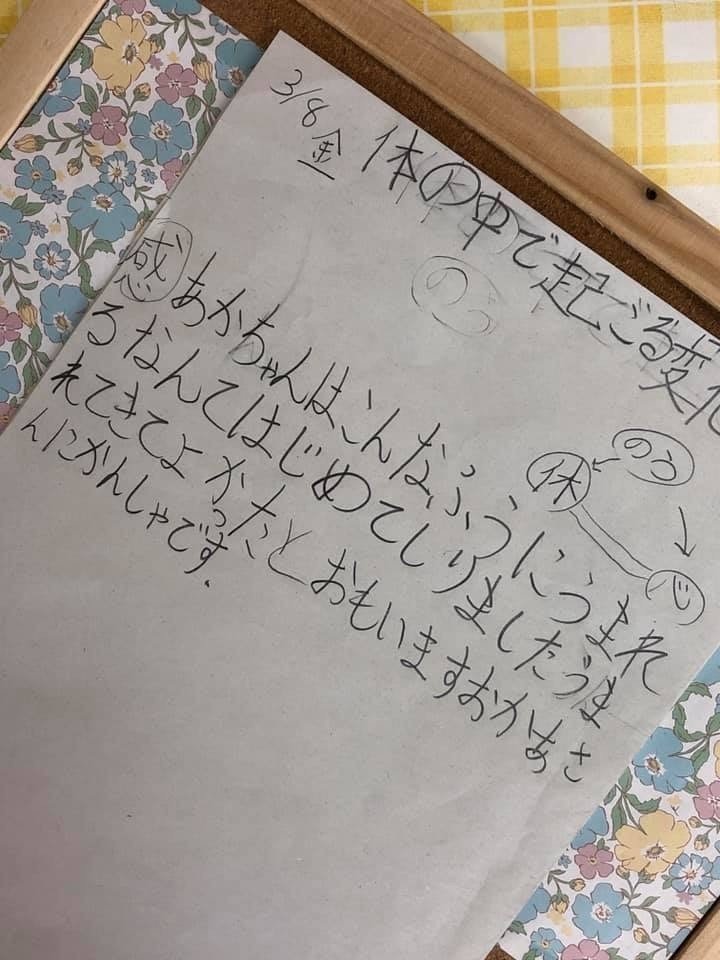 3/8 金
体の中で起こる変化
のう
のう
休
心
感 あかちゃんはこんなふうにうまれ
るなんてはじめてしりましたうま
れてきてよかったとおもいますおかあさ
んにかんしゃです.